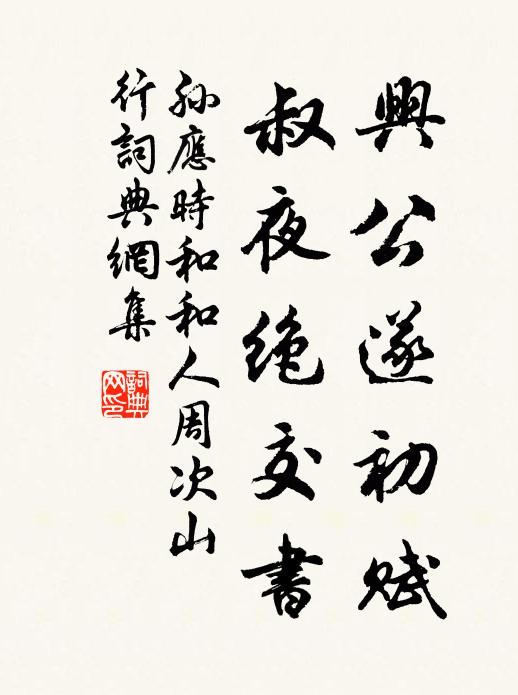 興公遂初賦
叔夜絶交書
孫應時和和人周次山
行詞典網集
詞典
网印